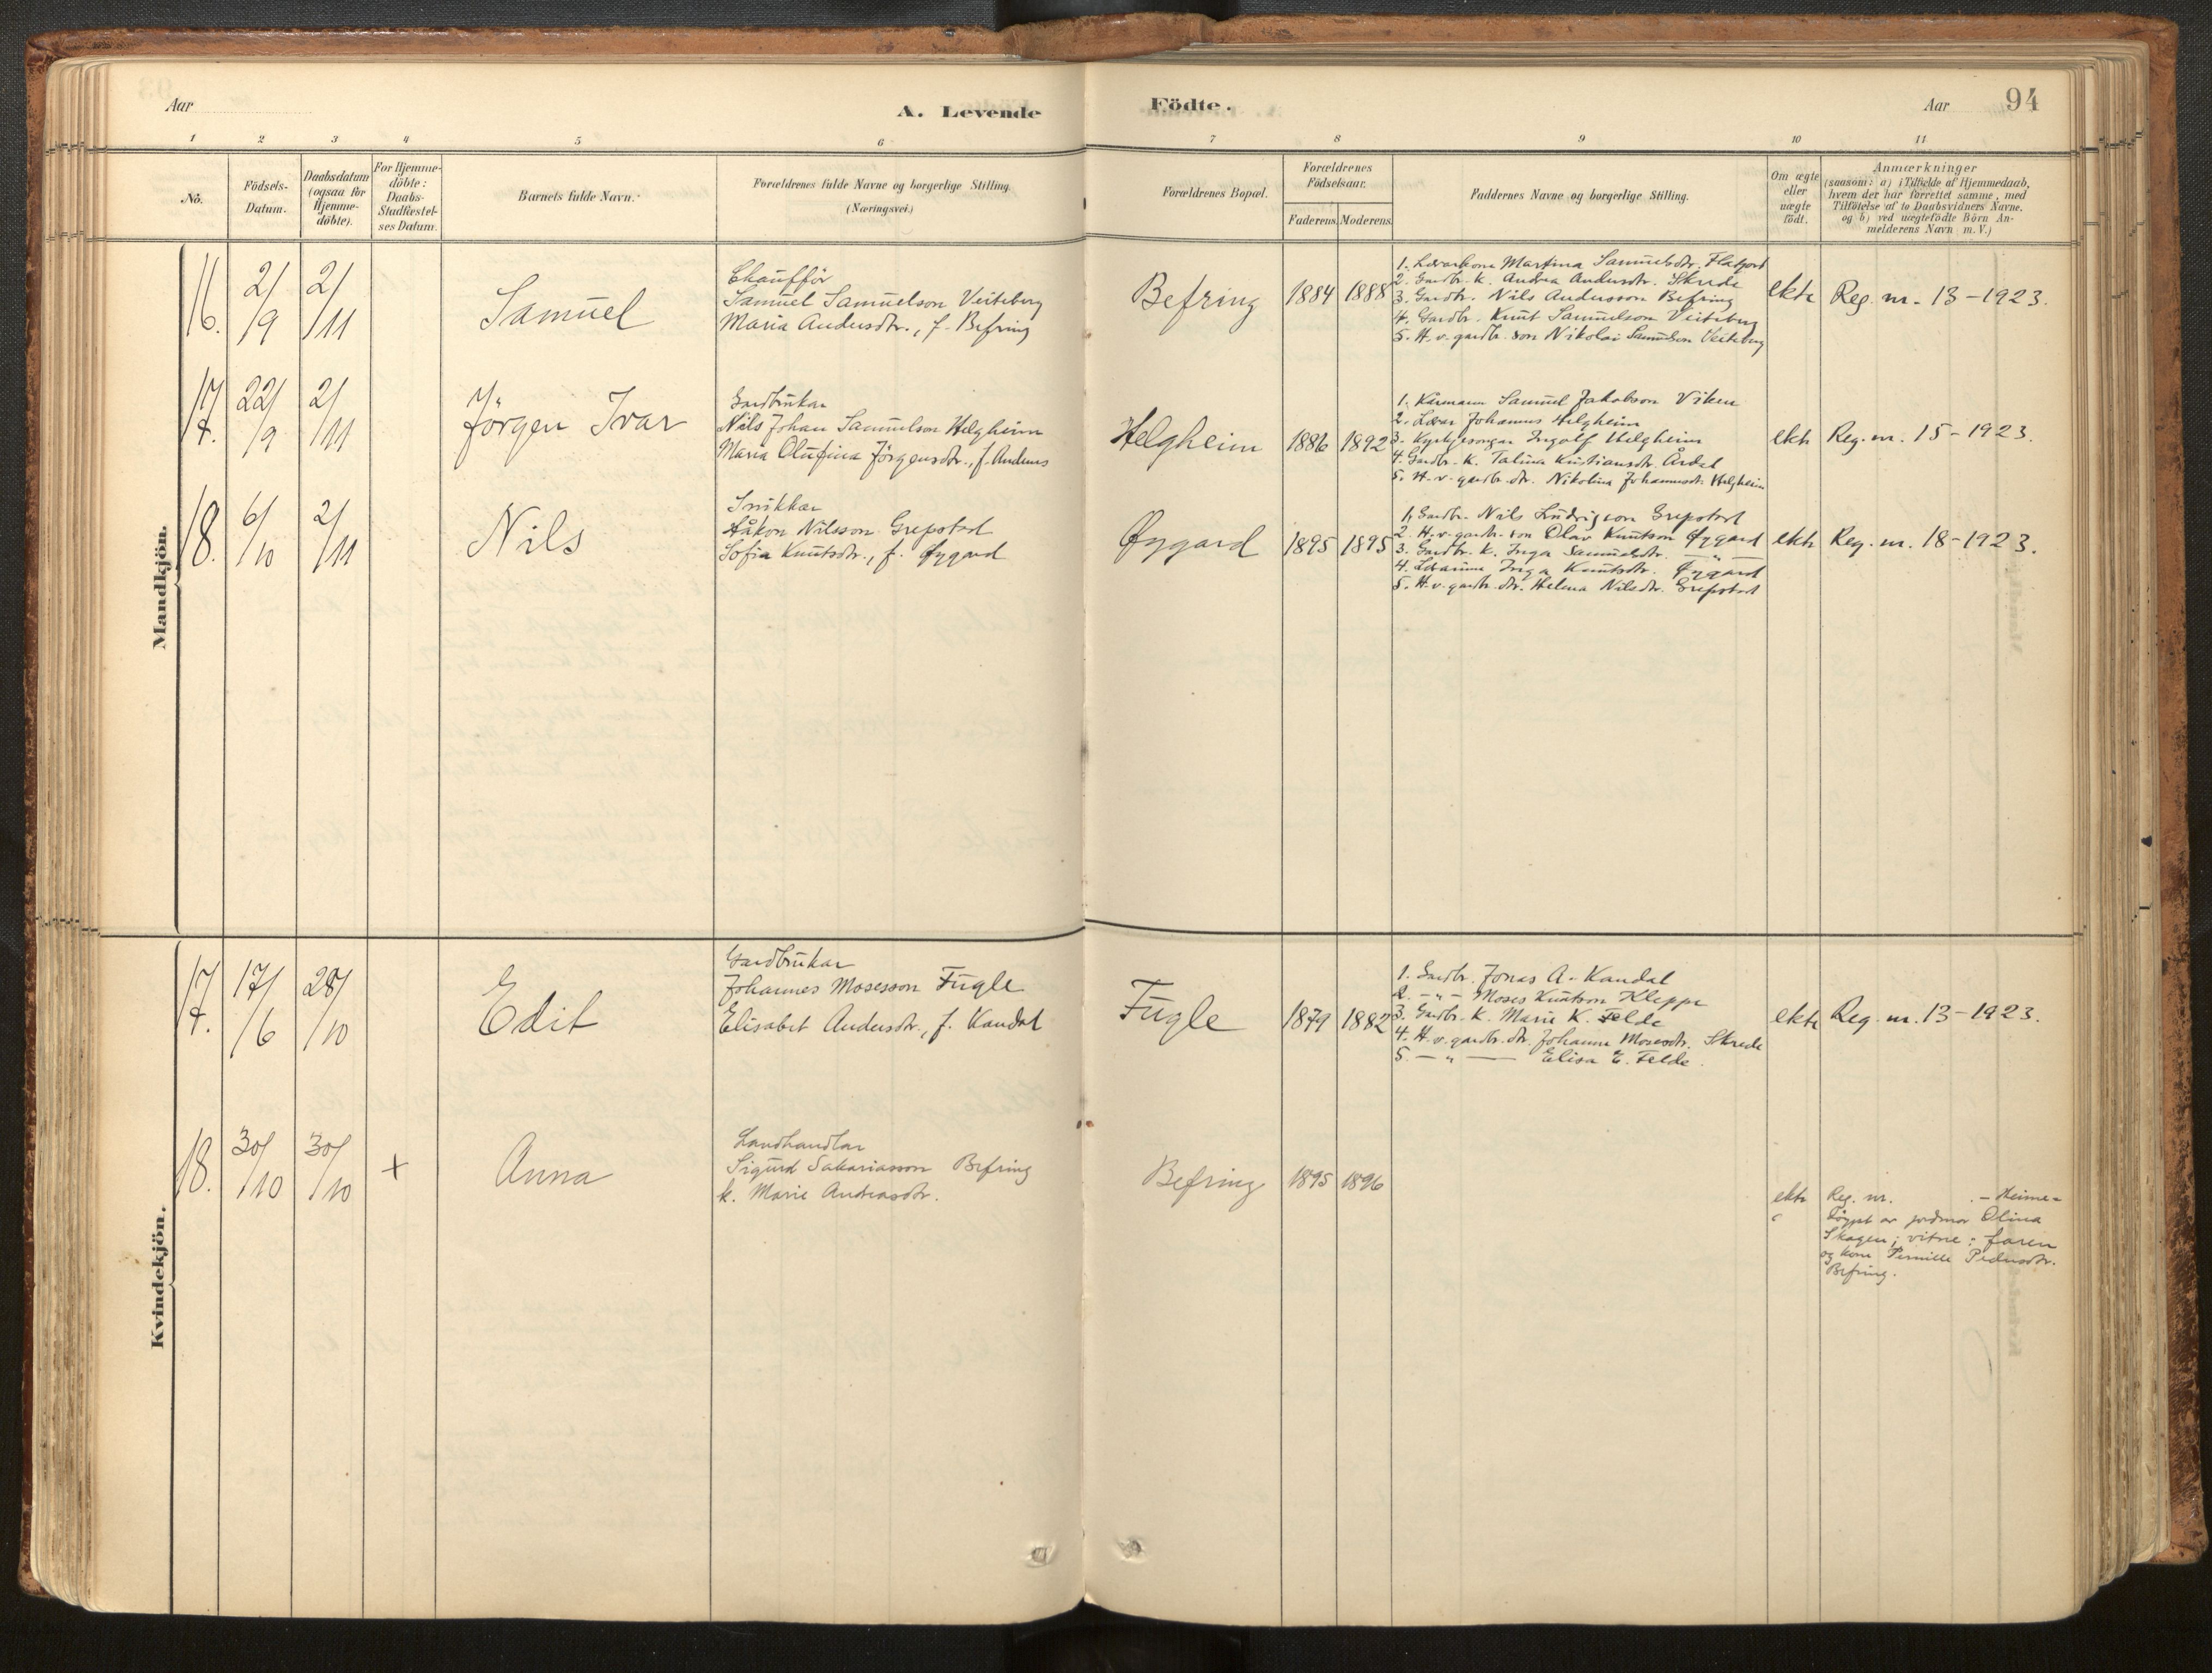 Aar
A. Levende
Födte.
Aar
94
1 2 3 4 5 6 7 8 9 10 11
No.
Födsels-
Datum.
Daabsdatum
(ogsaa for
Hjemme-
döbte).
For Hjemme-
döbte:
Daabs-
Stadfæstel-
ses Datum.
Barnets fulde Navn.
Forældrenes fulde Navne og borgerlige Stilling.
(Næringsvei.)
Forældrenes Bopæl.
Forældrenes
Födselsaar.
Faderens.
Moderens.
Faddernes Navne og borgerlige Stilling.
Om ægte
eller
uægte
födt.
Anmærkninger
(saasom: a) i Tilfælde af Hjemmedaab,
hvem der har forrettet samme, med
Tilföielse af to Daabsvidners Navne.
og b) ved uægtefödte Börn An-
melderens Navn m. V.)
Mandkjön.
16.
2/9
2/11
Samuel
Chaufför
Samuel Samuelson Veiteberg
Maria Andersdtr., f. Befring
Befring
1884
1888
1. Lærarkona Martina Samuelsdtr. Flatjord
2. Gardbr. k. Andrea Andersdtr. Skrede
3. Gardbr. Nils Andersson Befring
4. Gardbr. Knut Samuelson Veiteberg
5. H. v. gardbr. son Nikolai Samuelson Veiteberg
ekte
Reg. nr. 13-1923.
17.
22/9
2/11
Jörgen Ivar
Gardbrukar
Nils Johan Samuelson Helgheim
Maria Olufina Jörgensdtr., f.
Helgheim
1886
1892
1. Kårmann Samuel Jakobson Viken
2. Lærar Johannes Helgheim
3. Kyrkjesongar Ingolf Helgheim
4. Gardbr. K. Talina Kristiansdtr. Årdal
5. H. v. gardbr. dtr. Nikolina Johannesdtr. Helgheim
ekte
Reg. nr. 15-1923.
18.
6/10
2/11
Nils
Snikkar
Håkon Nilsson Grepstad
Sofia Knutsdtr., f. Øygard
Øygard
1895
1895
1. Gardbr. Nils Ludrigson Grepstad
2. H. v. gardbr. son Olav Knutson Øygard
3. Gardbr. k. Inga Samuelsdtr. — " —
4. Lærarinne Inga Knutsdtr. Øygard
5. H. v. gardbr. dtr. Helena Nilsdtr. Grepstad
ekte
Reg. nr. 18-1923.
Kvindekjön.
17.
17/6
28/10
Edit
Gardbrukar
Johannes Mosesson Fugle
Elisabet Andersdtr., f. Kandal
Fugle
1879
1882
1. Gardbr. Jonas A. Kandal
2. - " - Moses Knutson Kleppe
3. Gardbr. K. Marie K. Felde
4. H. v. gardbr. dtr. Johanne Mosesdtr. Skrede
5. — " — Elisa E. Felde.
ekte
Reg. nr. 13-1923.
18.
30/10
30/10
+
Anna
Landhandlar
Sigurd Sakariasson Befring
k. Marie Andreasdtr.
Befring
1895
1896
ekte
Reg. nr. . - Heime-
döypt av jordmor Olina
Skagen; vitne: faren
og kone Pernille Pedersdtr.
Befring.